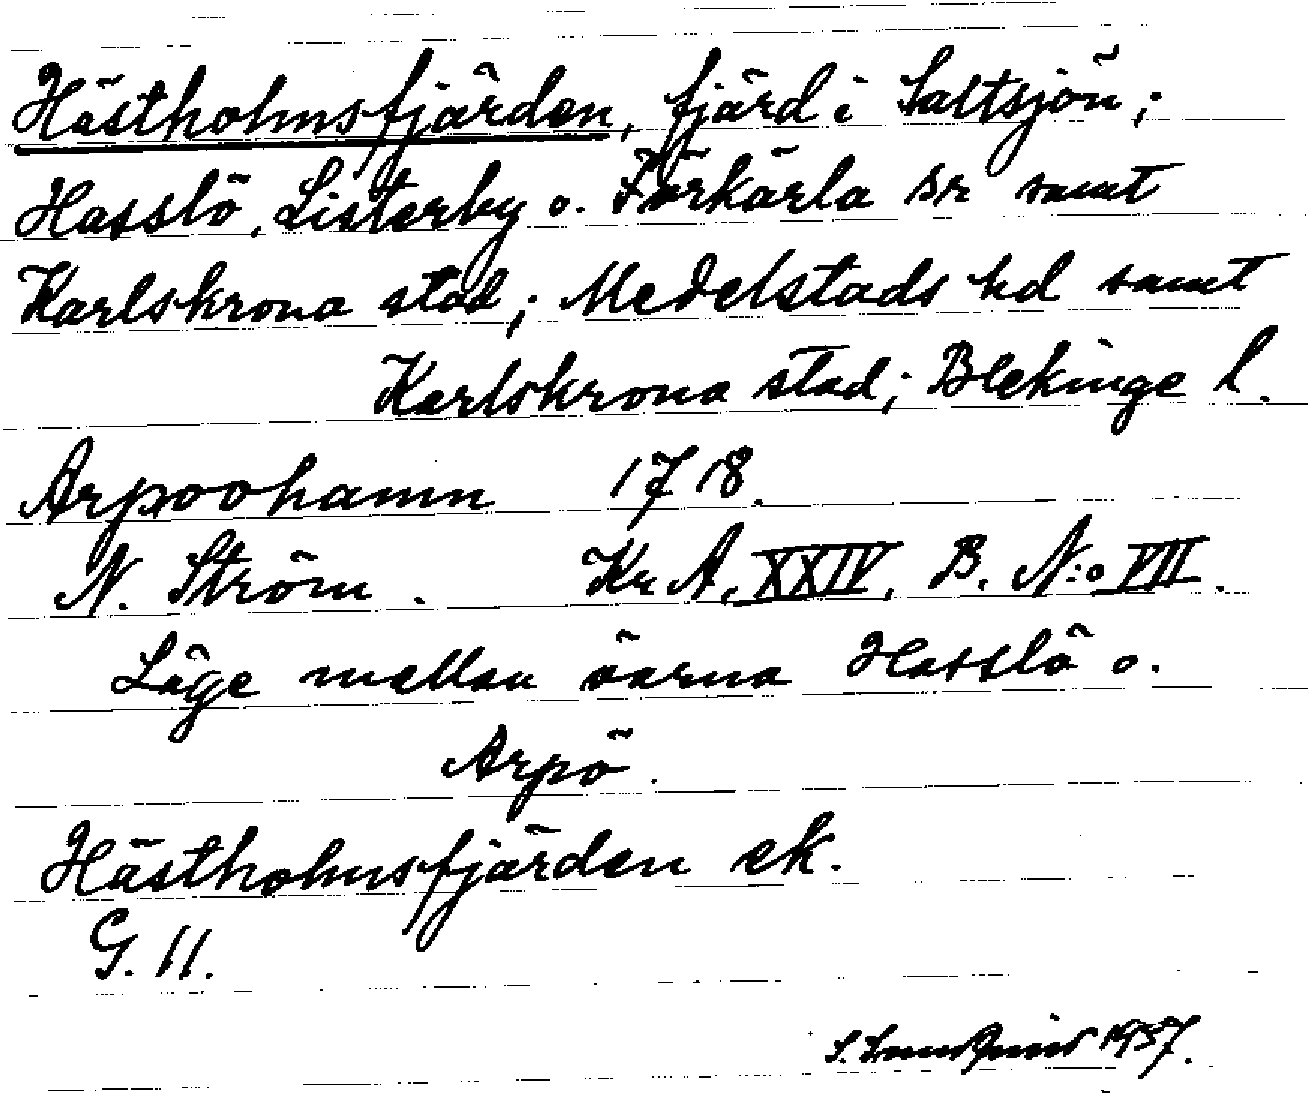 Hästholmsfjärden, fjärd i Saltsjön;
Hasslö, Listerby o. Förkärla snr samt
Karlskrona stad; Medelstads hd samt
Karlskrona stad; Blekinge l.
Arpoohamn 1718.
N. Ström. Kr A, XXIV, B. N:o VII.
Läge mellan öarna Hasslö o.
Arpö.
Hästholmsfjärden ek.
G. 11.
S. Lundquist 1957.